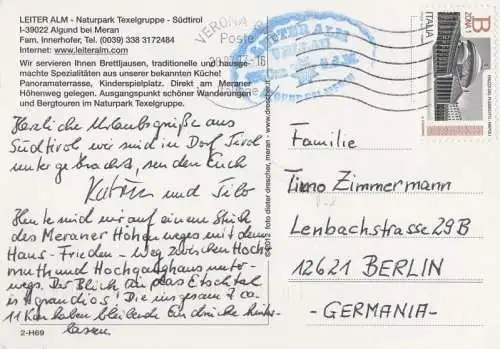 LEITER ALM - Naturpark Texelgruppe - Südtirol
I-39022 Algund bei Meran
Fam. Innerhofer, Tel. (0039) 338 3172484
Internet: www.leiteralm.com
Wir servieren Ihnen Brettljausen, traditionelle und hausge-
machte Spezialitäten aus unserer bekannten Küche!
Panoramaterrasse, Kinderspielplatz. Direkt am Meraner
Höhenweg gelegen. Ausgangspunkt schöner Wanderungen
und Bergtouren im Naturpark Texelgruppe.
Herzliche Urlaubsgrüße aus
Südtirol wir sind in Dorf Tirol
untergebracht, senden Euch
Katrin und Tilo
Heute sind wir auf einem Stück
des Meraner Höhenweges mit dem
Hans-Frieden-Weg zwischen Hoch
muth und Hochganghaus unter-
wegs. Der Blick in das Etschtal
ist grandios! Die insgesamt ca.
11 Km haben bleibende Eindrücke hinter-
lassen
2-H69
©2012 foto dieter drescher, meran - www.drescher.it
VERONA
Poste
LEITER ALM
ITALIA
B
ZONA 1
Familie
Timo Zimmermann
Lenbachstrasse 29B
12621 BERLIN
-GERMANIA-